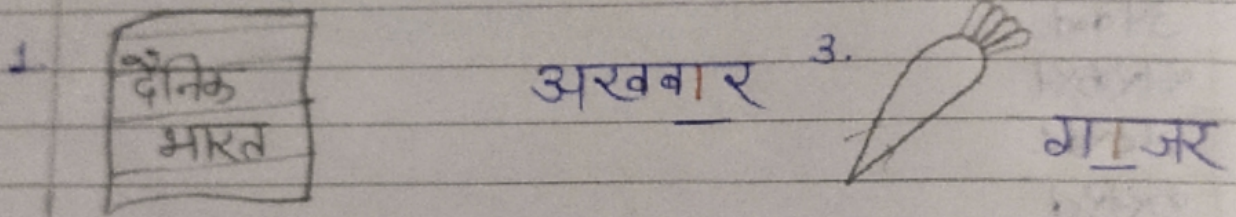 1.
दैनिक
भारत
अखबार
3.
गाजर